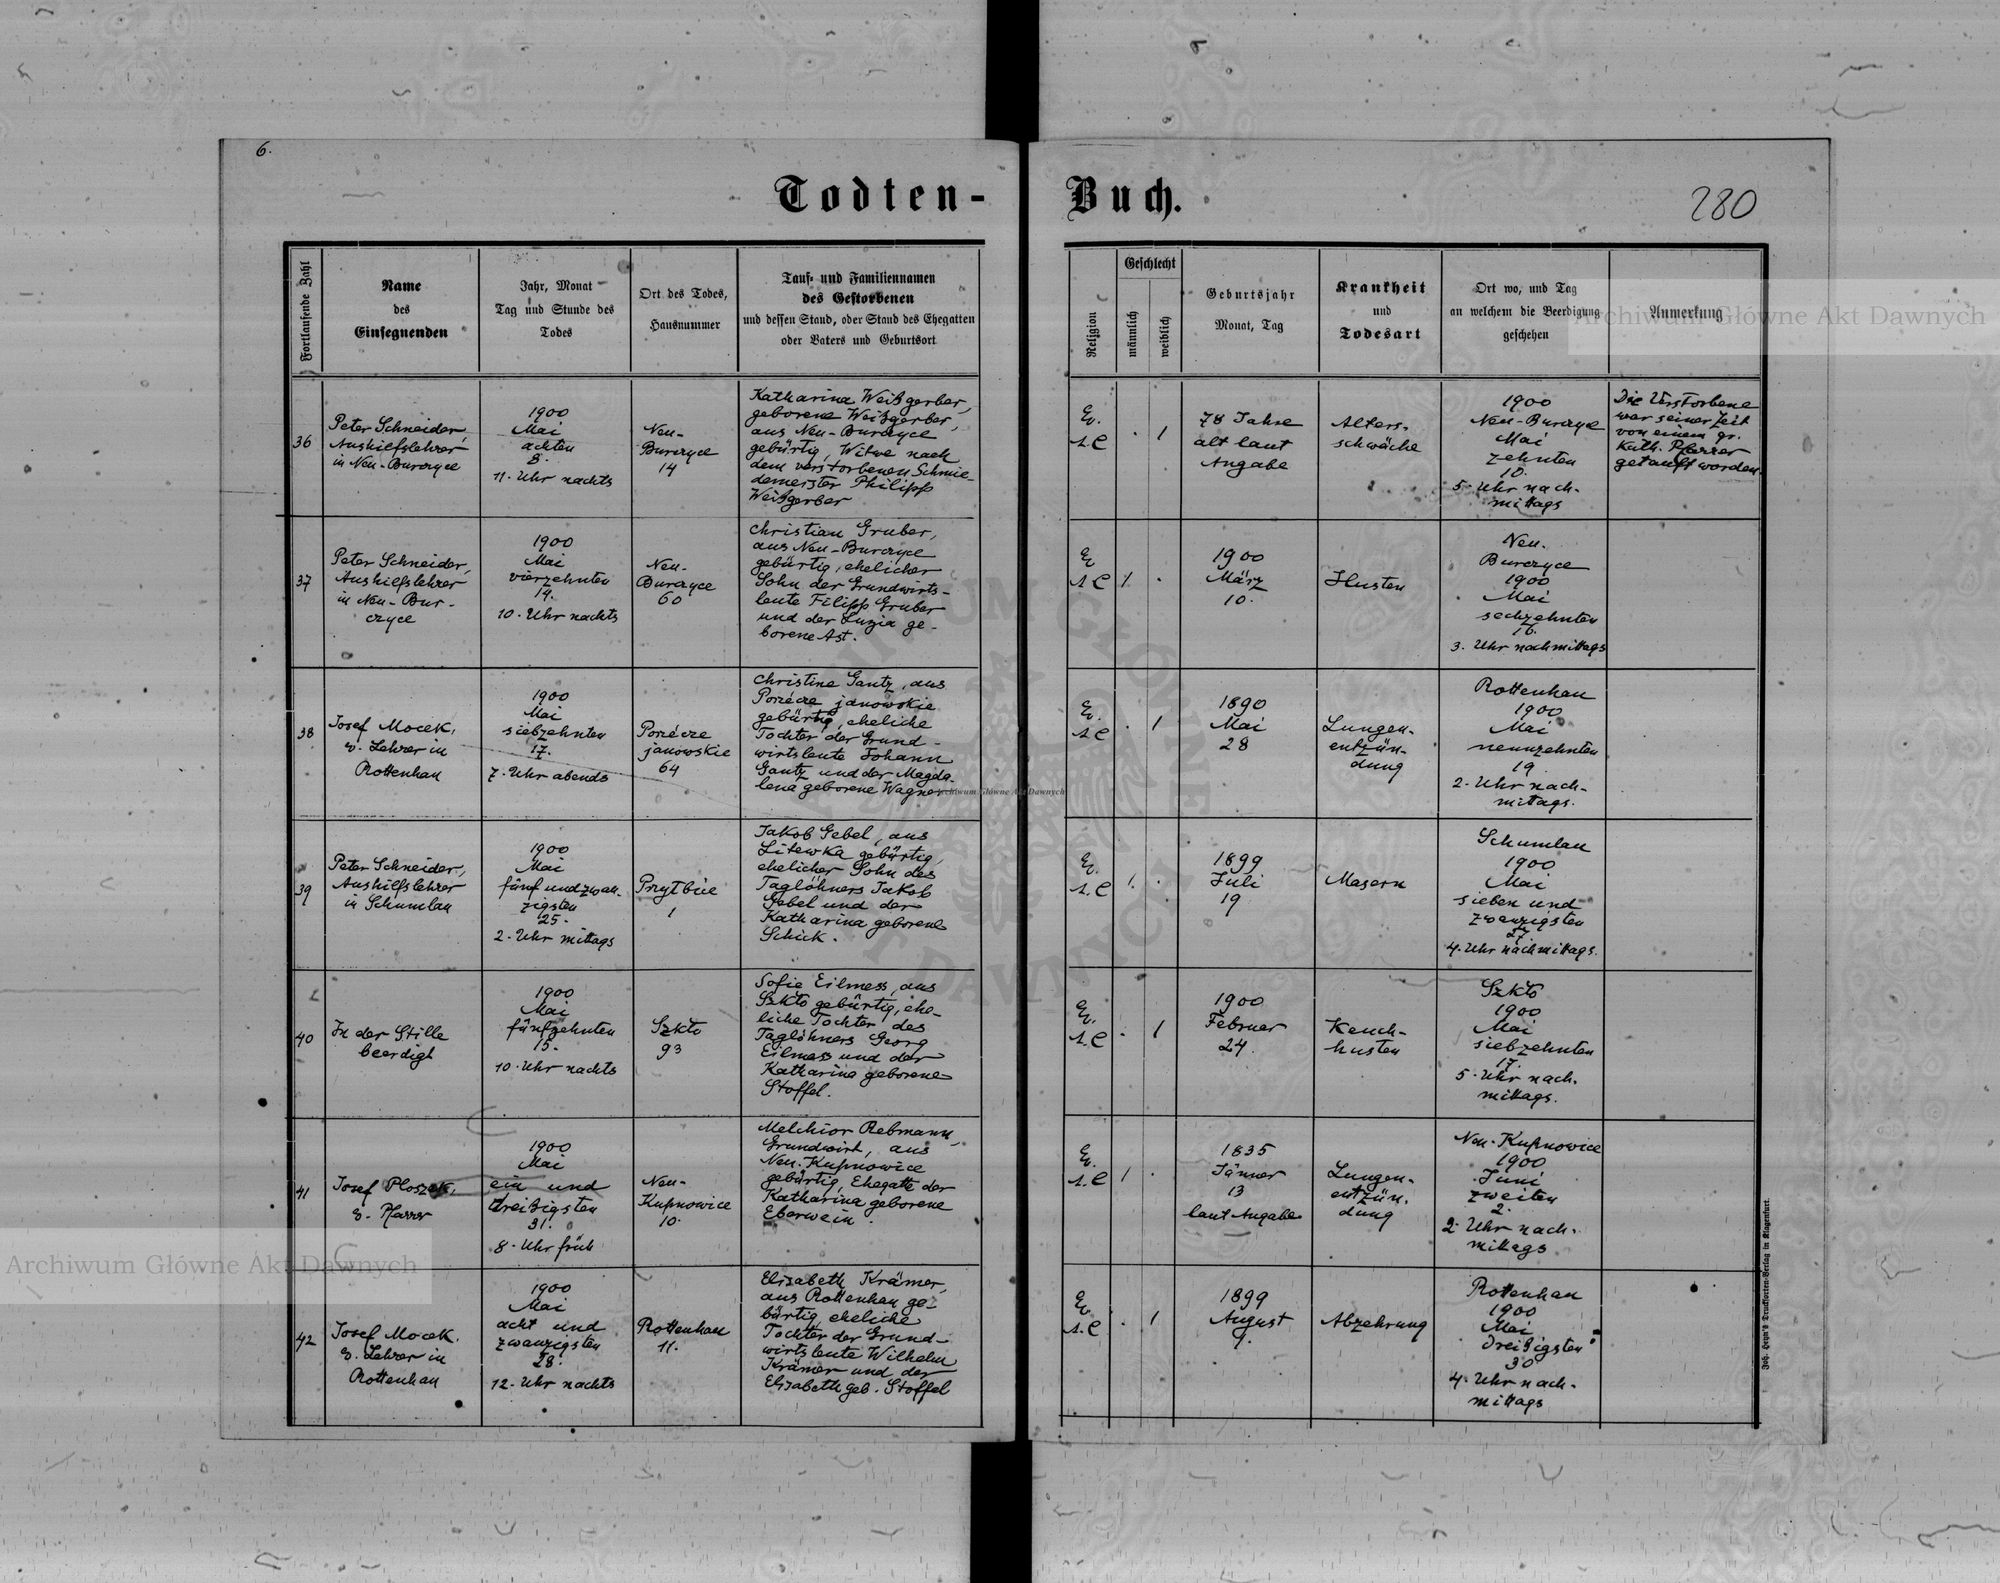 6.
Todten-
Buch.
280
Fortlaufende Zahl
Name
des
Einsegnenden
Jahr, Monat
Tag und Stunde des
Todes
Ort des Todes,
Hausnummer
Tauf- und Familiennamen
des Gestorbenen
und dessen Stand, oder Stand des Ehegatten
oder Vaters und Geburtsort
Religion
Geschlecht
männlich
weiblich
Geburtsjahr
Monat, Tag
Krankheit
und
Todesart
Ort wo, und Tag
an welchem die Beerdigung
geschehen
Anmerkung
36
Peter Schneider,
Aushilfslehrer
in Neu-Burczyce
1900
Mai
achten
8.
11. Uhr nachts
Neu-
Burczyce
14
Katharina Weißgerber,
geborene Weißgerber,
aus Neu-Burczyce
gebürtig, Witwe nach
dem verstorbenen Schmie-
demeister Philipp
Weißgerber
Ev.
A.C
. 1
78 Jahre
alt laut
Angabe
Alters-
schwäche
1900
Neu-Burczyce
Mai
zehnten
10.
5. Uhr nach-
mittags
Die Verstorbene
war seiner Zeit
von einem gr.
Kath. Pfarrer
getauft worden.
37
Peter Schneider,
Aushilfslehrer
in Neu-Bur-
czyce
1900
Mai
vierzehnten
14.
10. Uhr nachts
Neu-
Burczyce
60
Christian Gruber,
aus Neu-Burczyce
gebürtig, ehelicher
Sohn der Grundwirts-
leute Filipp Gruber
und der Luzia ge-
borene Ast.
Ev
A.C
1 .
1900
März
10.
Husten
Neu-
Burczyce
1900
Mai
sechzehnten
16.
3. Uhr nachmittags
38
Josef Mocek,
ev. Lehrer in
Rottenhan
1900
Mai
siebzehnten
17.
7. Uhr abends
Porzécze
janowskie
64
Christine Gantz, aus
Porzécze janowskie
gebürtig, eheliche
Tochter der Grund-
wirtsleute Johann
Gantz und der Magda-
lena geborene Wagner
Ev.
A.C
. 1
1890
Mai
28
Lungen-
entzün-
dung
Rottenhan
1900
Mai
neunzehnten
19
2. Uhr nach-
mittags.
39
Peter Schneider,
Aushilfslehrer
in Schumlau
1900
Mai
fünf und zwan-
zigsten
25.
2. Uhr mittags
Przytbice
1
Jakob Gebel, aus
Litewka gebürtig,
ehelicher Sohn des
Taglöhners Jakob
Gebel und der
Katharina geborene
Schick.
Ev.
A.C
1 .
1899
Juli
19
Masern
Schumlau
1900
Mai
sieben und
zwanzigsten
27.
4. Uhr nachmittags.
40
In der Stille
beerdigt
1900
Mai
fünfzehnten
15.
10. Uhr nachts
Szkło
93
Sofie Eilmess, aus
Szkło gebürtig, ehe-
liche Tochter des
Taglöhners Georg
Eilmess und der
Katharina geborene
Stoffel.
Ev.
A.C
. 1
1900
Februer
24.
Keuch-
husten
Szkło
1900
Mai
siebzehnten
17.
5. Uhr nach-
mittags.
41
Josef Ploszek,
ev. Pfarrer
1900
Mai
ein und
dreißigsten
31.
8. Uhr früh
Neu-
Kupnowice
10.
Melchior Rebmann,
Grundwirt, aus
Neu-Kupnowice
gebürtig, Ehegatte der
Katharina geborene
Eberwein.
Ev.
A.C
1 .
1835
Jänner
13
laut Angabe
Lungen-
entzün-
dung
Neu-Kupnowice
1900
Juni
zweiten
2.
2. Uhr nach-
mittags
42
Josef Mocek.
ev. Lehrer in
Rottenhan
1900
Mai
acht und
zwanzigsten
28.
12. Uhr nachts
Rottenhan
11.
Elisabeth Krämer,
aus Rottenhan ge-
bürtig, eheliche
Tochter der Grund-
wirtsleute Wilhelm
Krämer und der
Elisabeth geb. Stoffel
Ev.
A.C
. 1
1899
August
9.
Abzehrung
Rottenhan
1900
Mai
dreißigsten
30
4. Uhr nach-
mittags
Joh. Heyn's Drucksorten-Verlag in Klagenfurt.
Archiwum Główne Akt Dawnych
Archiwum Główne Akt Dawnych
Archiwum Główne Akt Dawnych
ARCHIWUM GŁÓWNE AKT DAWNYCH